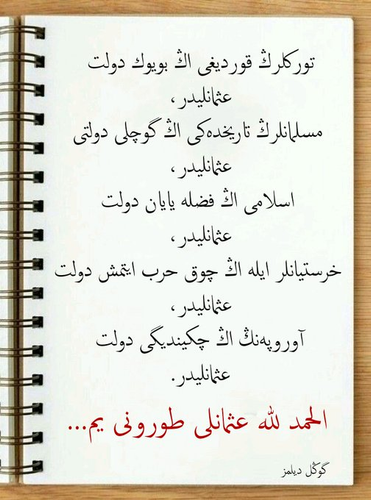 توركلرڭ قورديغى اڭ بويوك دولت
عثمانليدر ،
مسلمانلرڭ تاريخده‌كى اڭ گوچلى دولتى
عثمانليدر ،
اسلامى اڭ فضله يايان دولت
عثمانليدر ،
خرستيانلر ايله اڭ چوق حرب ايتمش دولت
عثمانليدر ،
آوروپه‌نڭ اڭ چكينديگى دولت
عثمانليدر.
الحمد لله عثمانلى طورونى يم...
گوڭل ديلمز